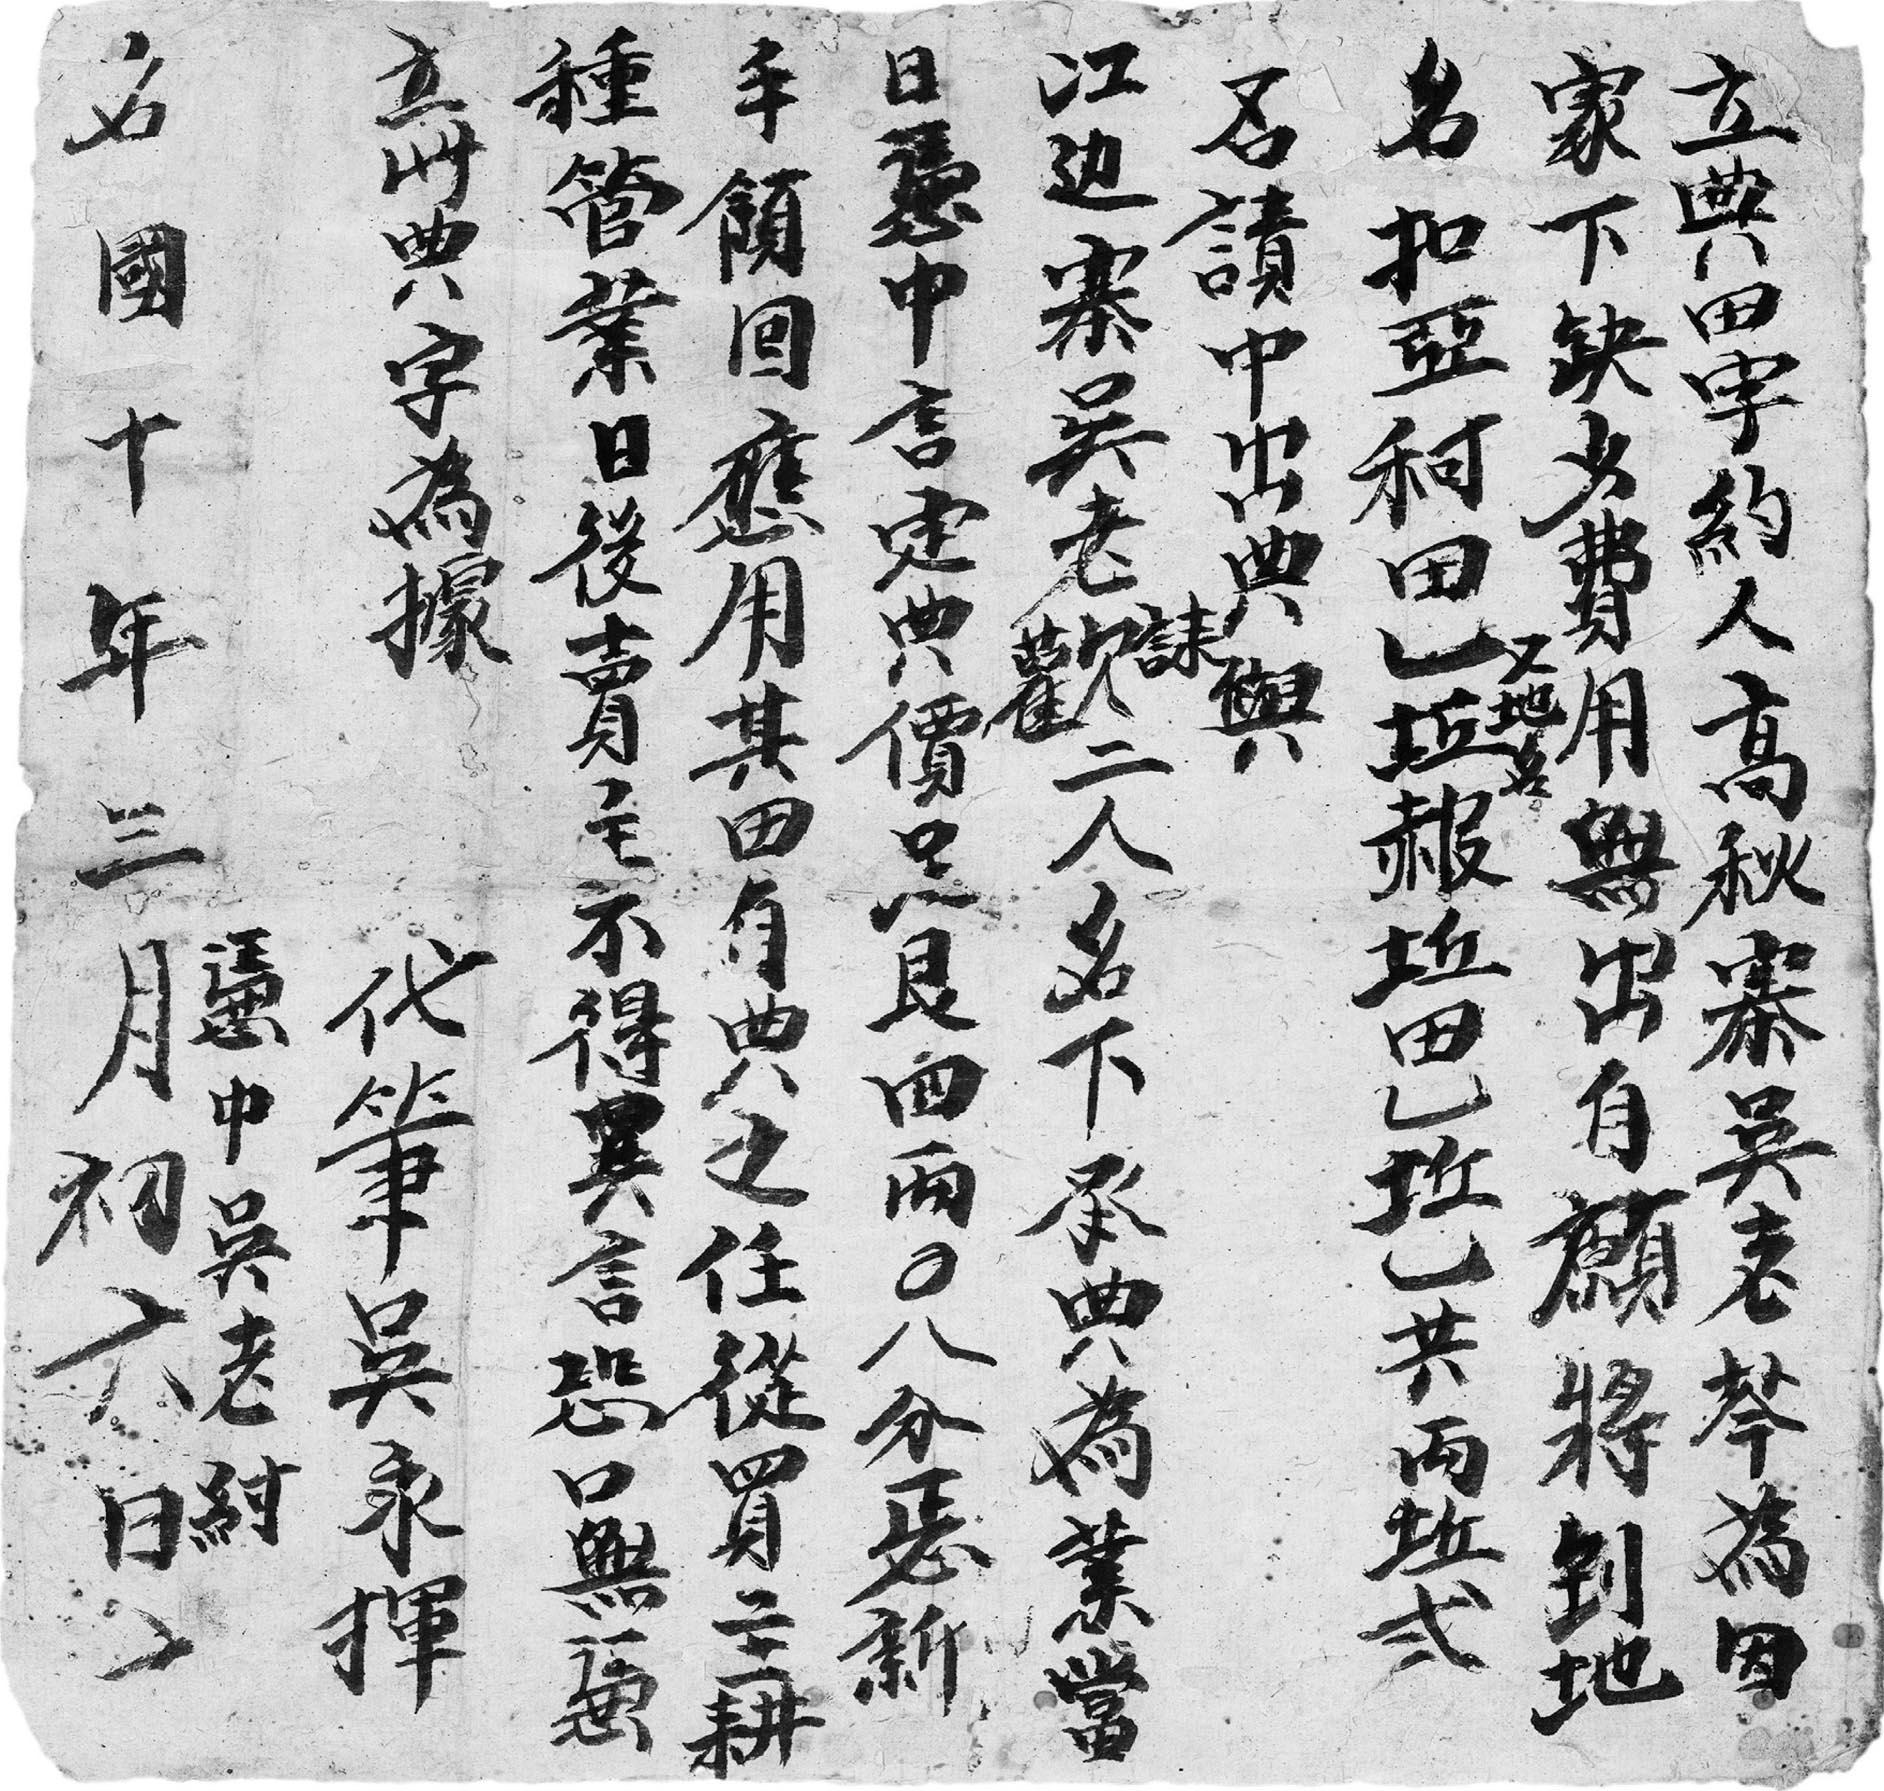 立典田字約人高秋寨吳老岑為因
家下缺少費用無出自願將到地
名扣亞秱田乚坵又地名坵赧坵田乚坵乚共両坵弍
名請中出典與
江边寨吳老歡誄二人名下承典為業當
日憑中言定典價足艮四両〇八分㤙新
手領回應用其田自典之任從買主耕
種管業日後賣主不得異言恐口無憑
立此典字為據
代筆吳永揮
憑中吳老紂
名國十年三月初六日立